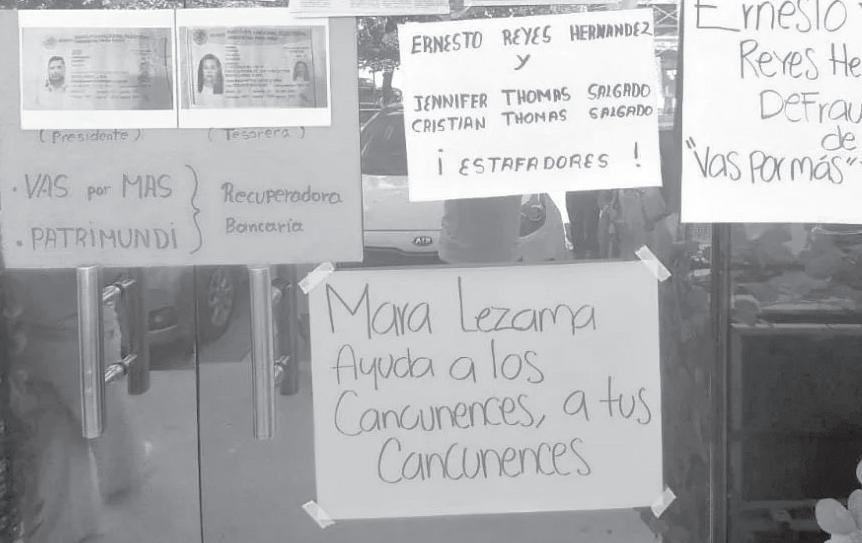 (Presidente)
(Tesorera)
· VAS por MAS
· PATRIMUNDI
Recuperadora
Bancaria
ERNESTO REYES HERNANDEZ
Y
JENNIFER THOMAS SALGADO
CRISTIAN THOMAS SALGADO
¡ ESTAFADORES !
Ernesto
Reyes He
DeFrau
de
"Vas Por más"
Mara Lezama
Ayuda a los
Cancunences, a tus
Cancunences
KIA